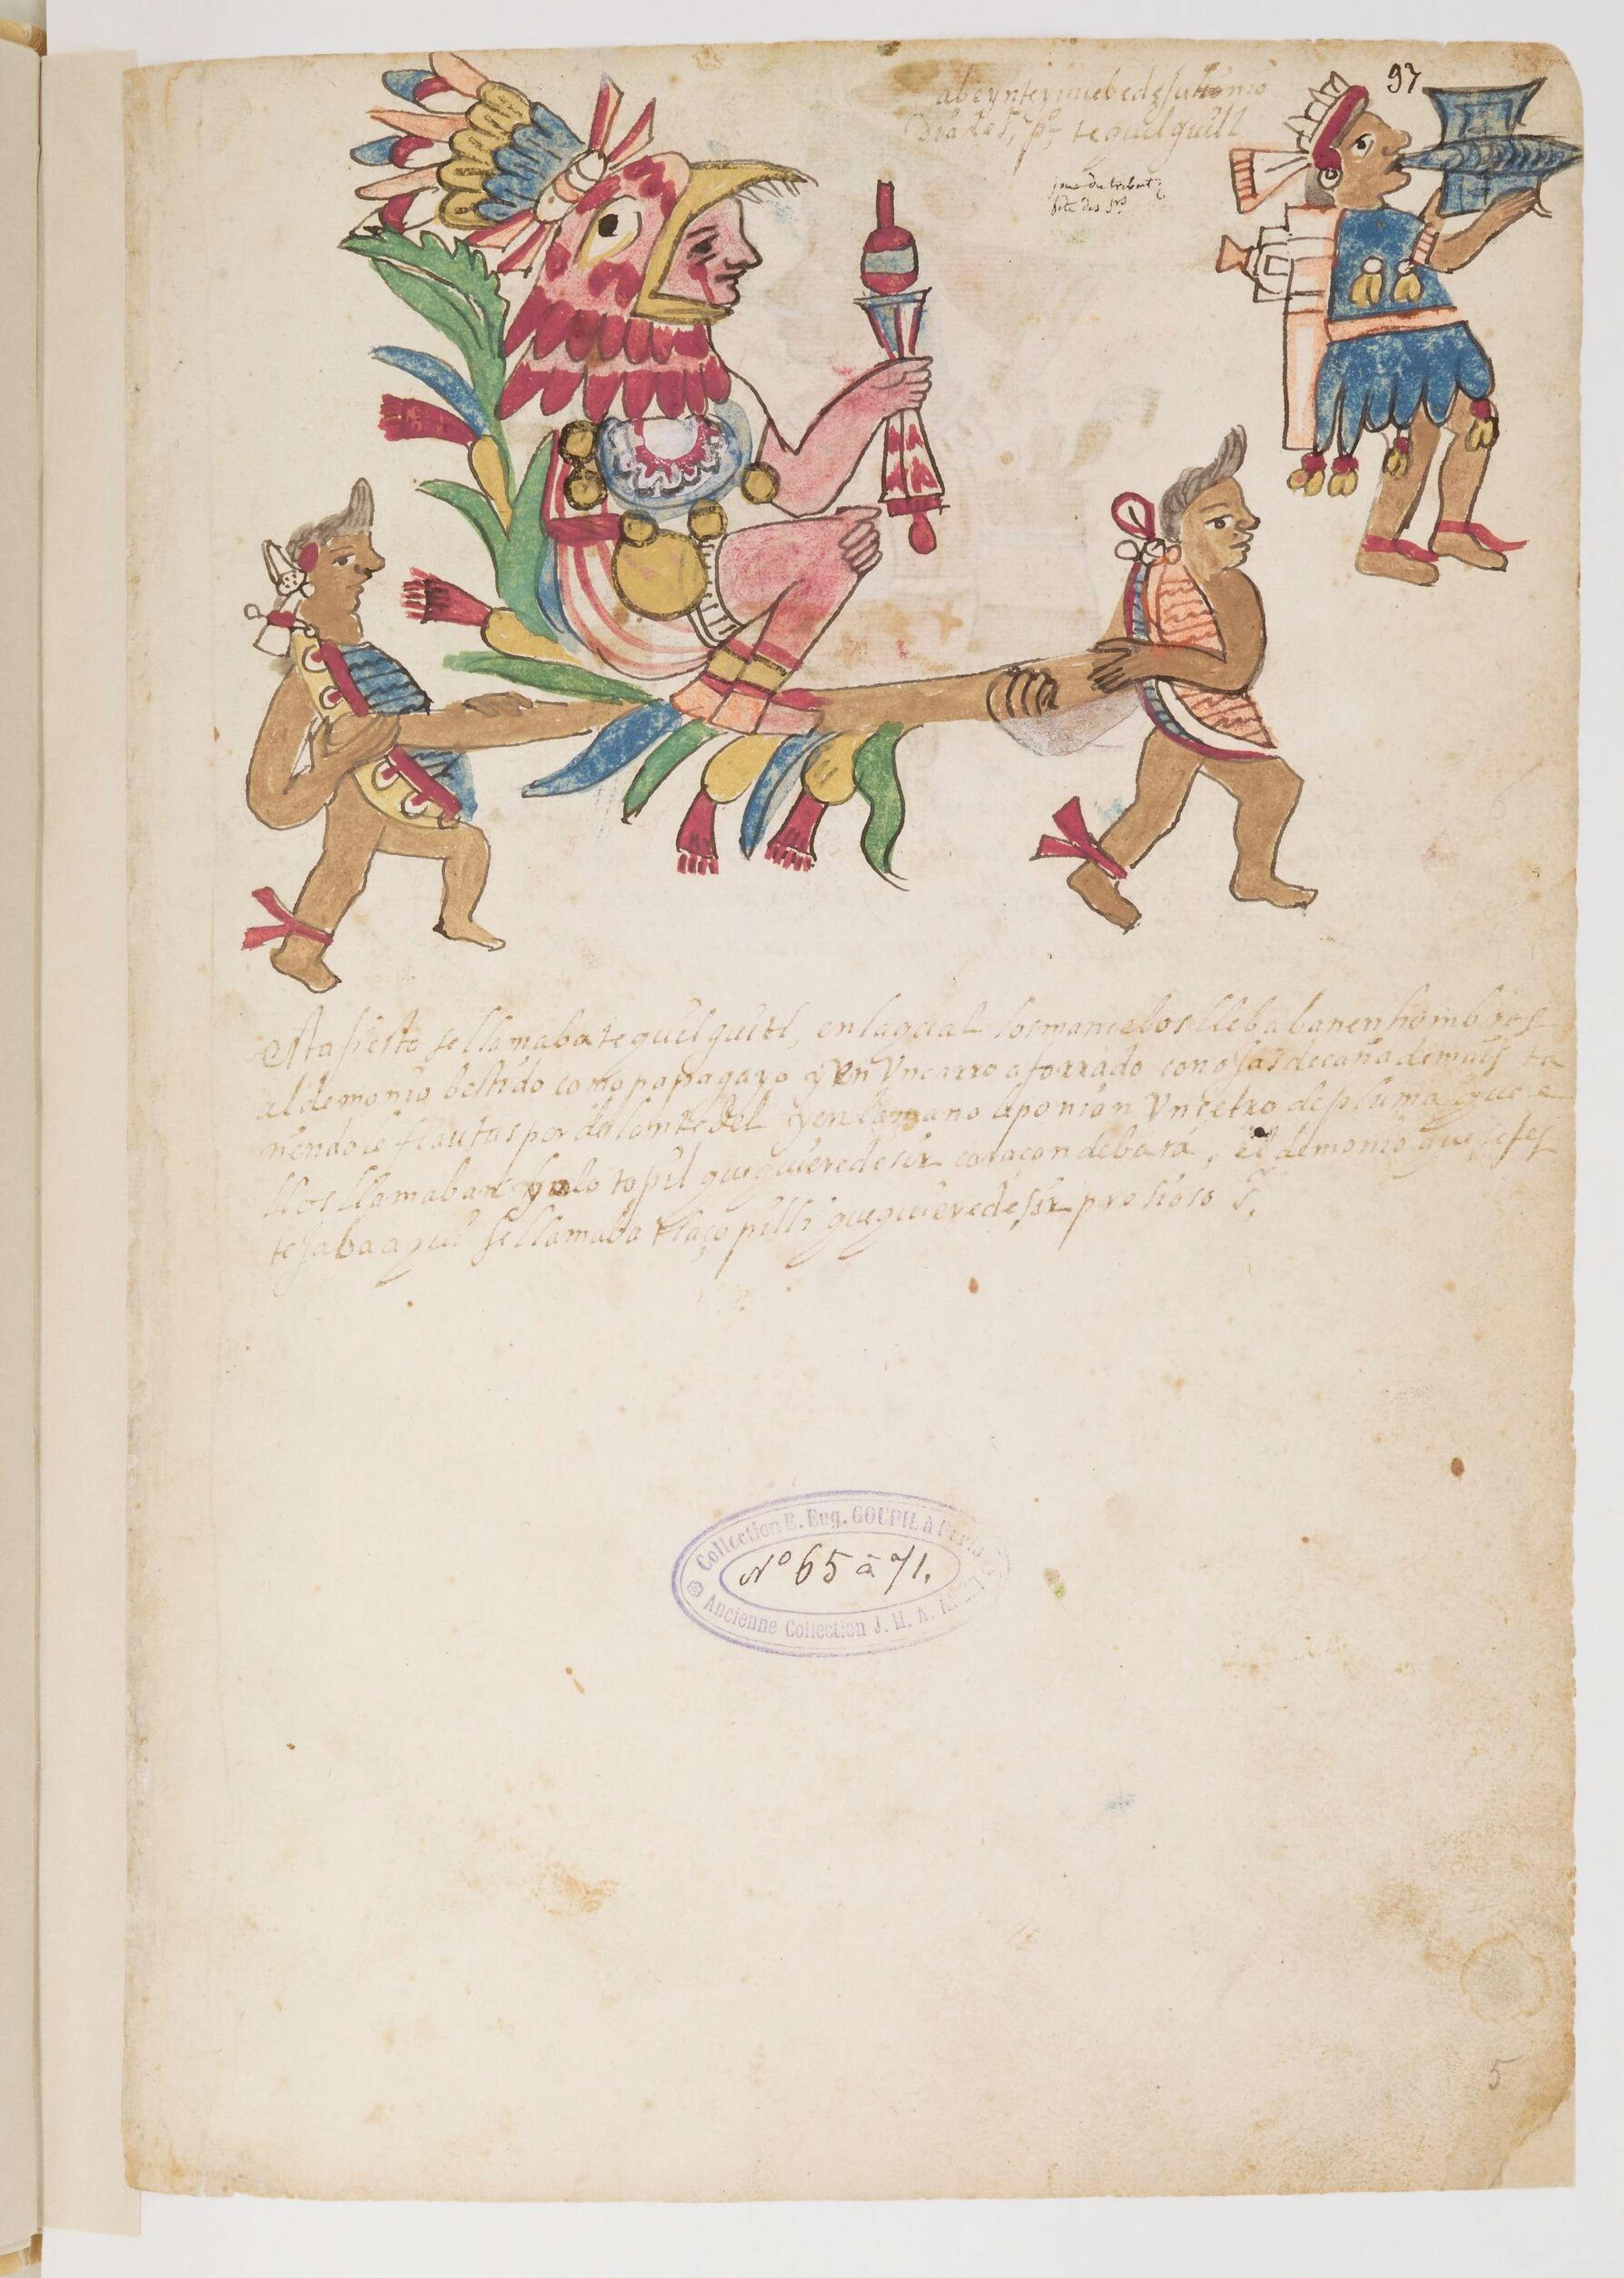 97
a beynte y nuebe de Junio
dia de S. pº tequilquitl
jour du tribut
fête des Srs
esta fiesta se llamaba tequilquitl, en la qual los mancebos llebaban en hombros
al demonio bestido como papagayo y en Un carro aforrado con ojas de caña de mais ta
ñendole flautas por delante del y en la mano le ponian Un cetro de pluma que e
llos llamaban yolo topil que quiere desir coraçon de bara, el demonio que se fes
tejaba aqui se llamaba tlaço pilli que quiere desir presioso S.
Collection E. Eug. GOUPIL à Paris
Nº 65 à 71.
Ancienne Collection J. M. A.
5